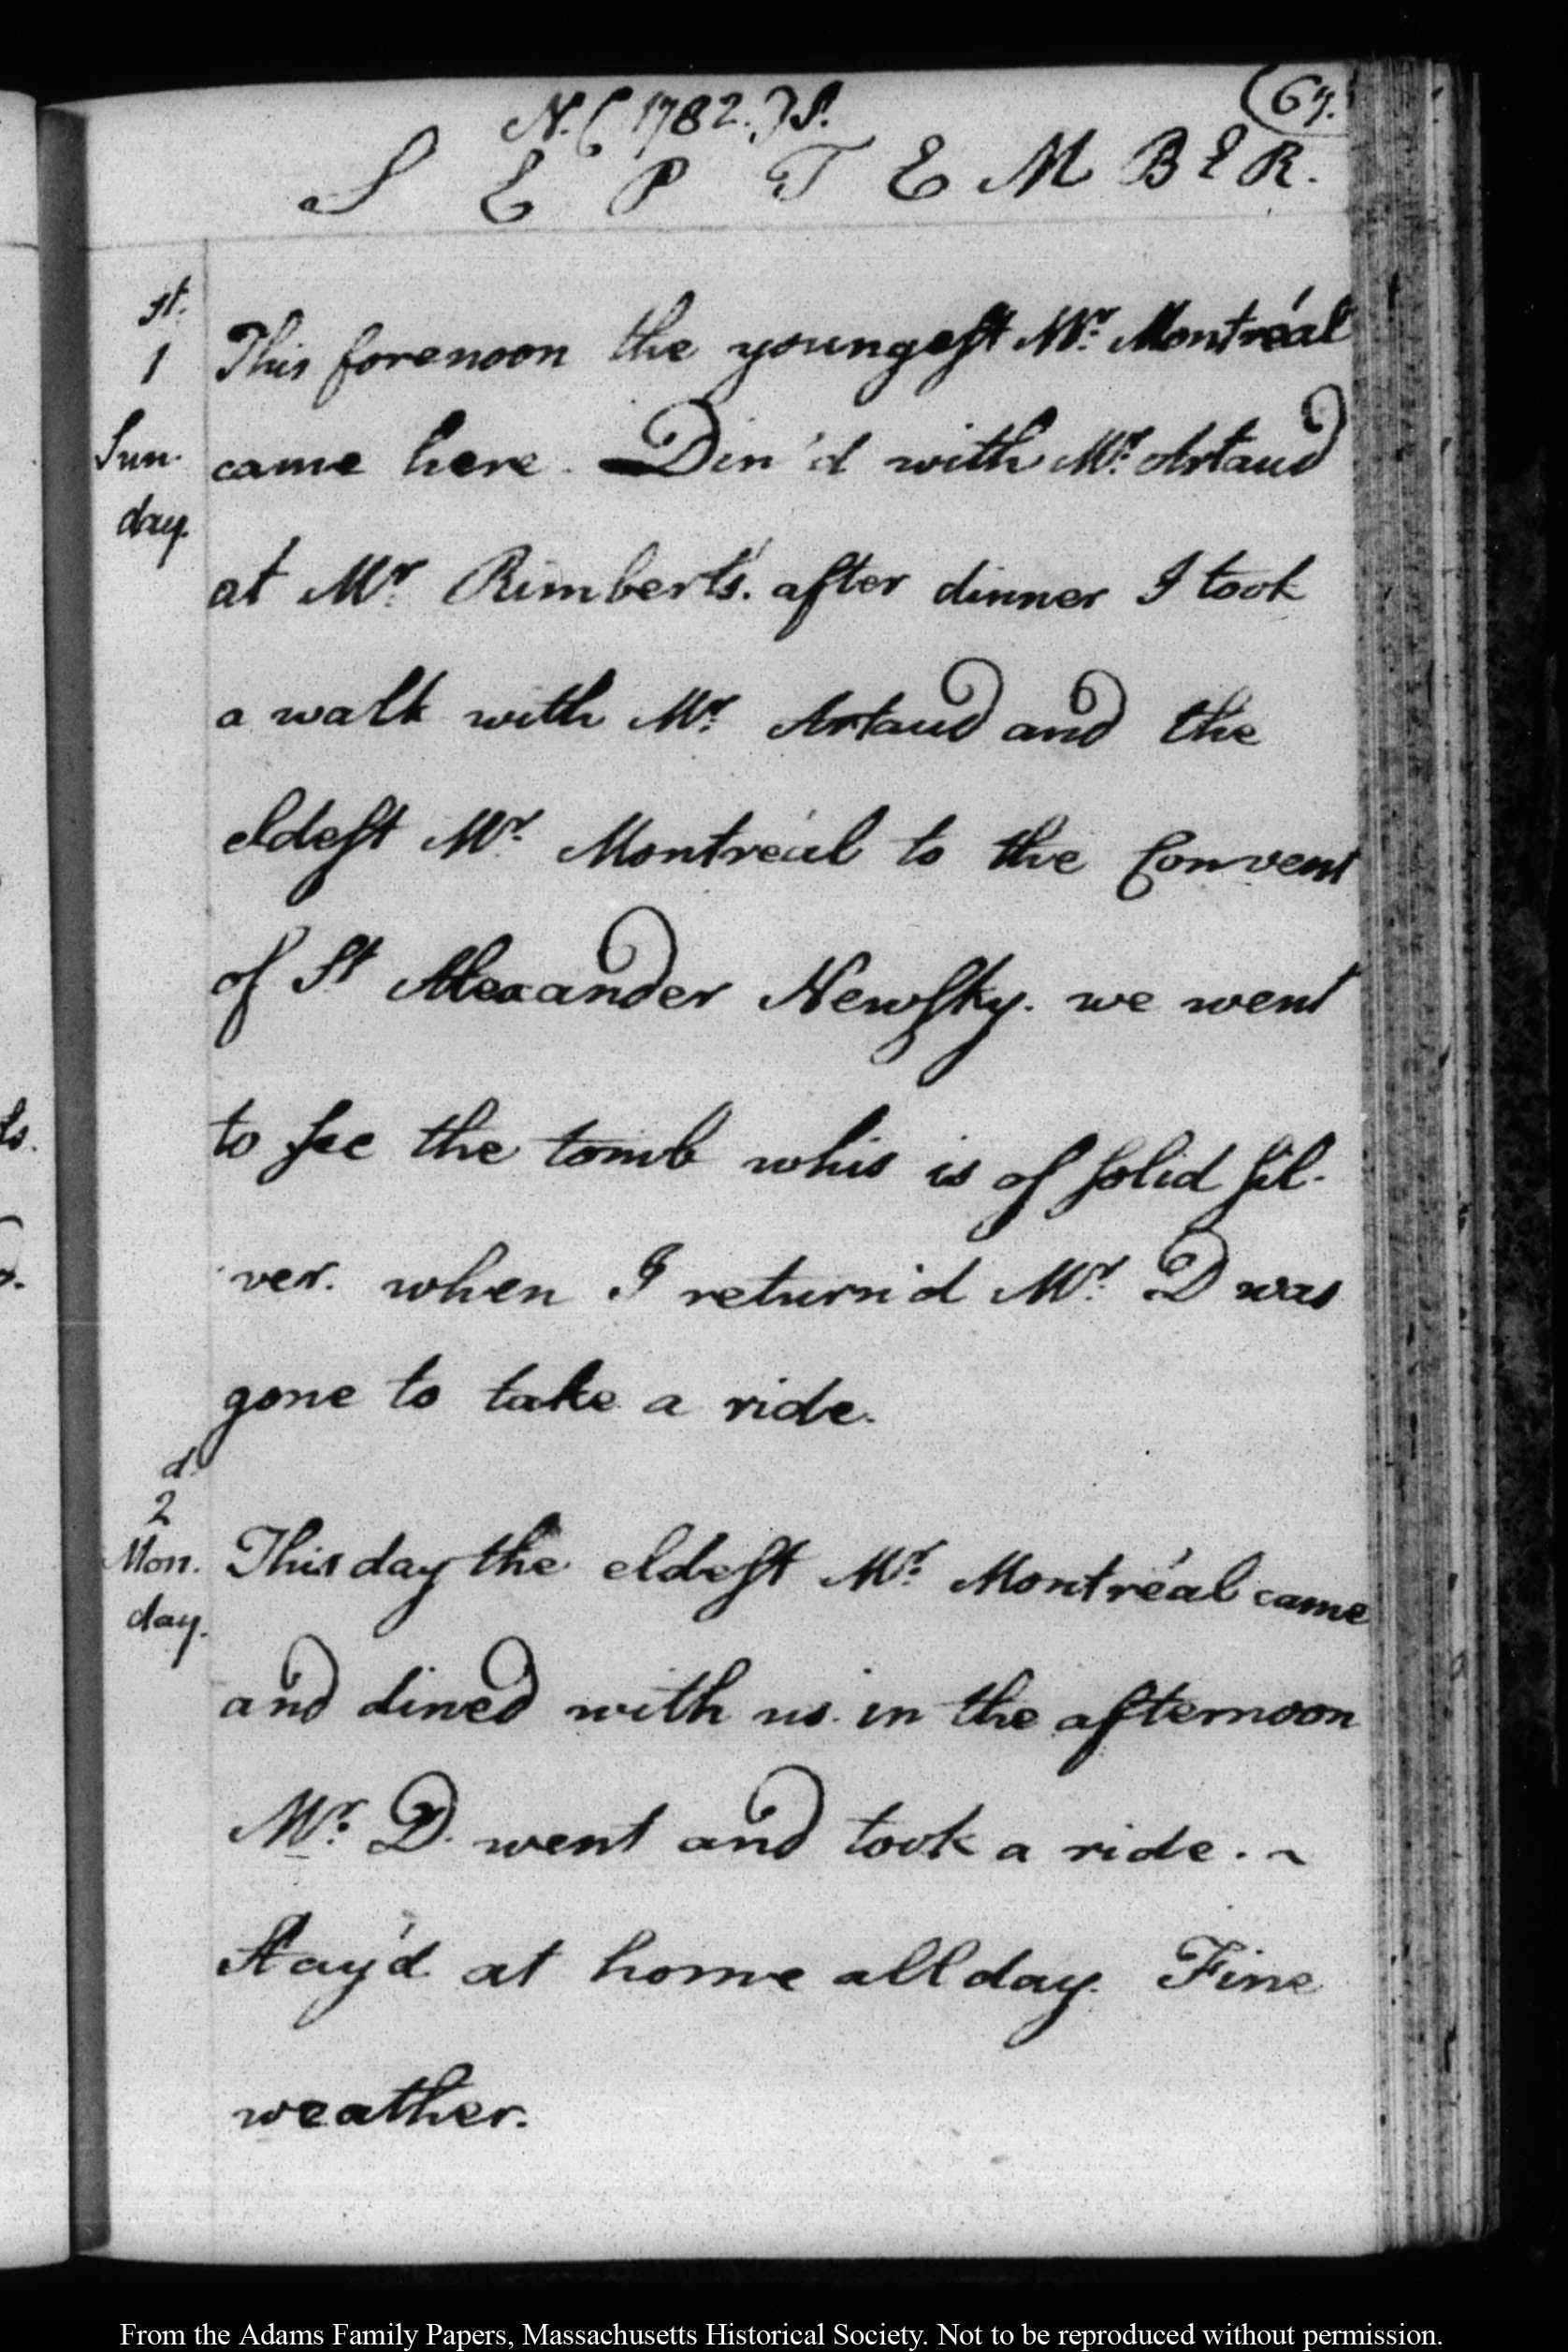 N. (1782.) S.
(67.
S E P T E M B E R.
st.
1
Sun.
day.
This forenoon the youngest Mr. Montréal
came here. Din'd with Mr. Artaud
at Mr. Rimbert's. after dinner I took
a walk with Mr. Artaud and the
eldest Mr. Montréal to the Convent
of St Alexander Newsky. we went
to see the tomb whis is of solid sil-
ver. when I return'd Mr. D was
gone to take a ride.
d.
2
Mon.
day.
This day the eldest Mr. Montréal came
and dined with us. in the afternoon
Mr. D. went and took a ride. ~
Stay'd at home all day. Fine
weather.
From the Adams Family Papers, Massachusetts Historical Society. Not to be reproduced without permission.